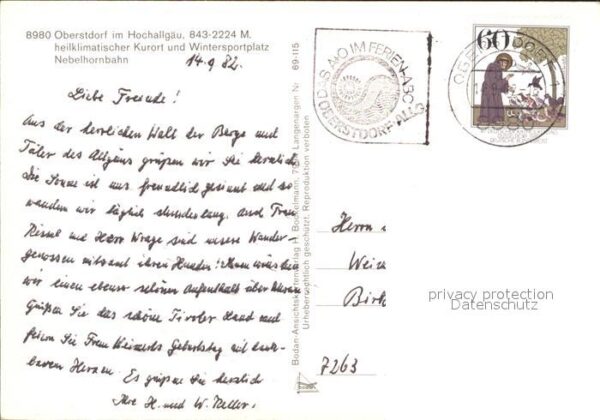 8980 Oberstdorf im Hochallgäu, 843-2224 M.
heilklimatischer Kurort und Wintersportplatz
Nebelhornbahn
14.9.82.
Liebe Freunde!
Aus der herrlichen Welt der Berge und
Täler des Allgäus grüßen wir Sie herzlich.
Die Sonne ist uns freundlich gesinnt und so
wandern wir täglich stundenlang. Auch Frau
und Herr Wrage sind unsere Wander-
genossen mitsamt ihren Hunden! Ihnen wünschen
wir einen ebenso schönen Aufenthalt über
Grüßen Sie das schöne Tiroler Land und
feiern Sie Frau Geburtstag mit dank-
baren Herzen. Es grüßen Sie herzlich
Ihre H. und W. Keller.
Bodan-Ansichtskartenverlag H. Bockelmann, Langenargen Nr 69-115
Urheberrechtlich geschützt, Reproduktion verboten
DAS A+O IM FERIEN-ABC
OBERSTDORF/ALLG.
60
OBERSTDORF
Herrn
7263
privacy protection
Datenschutz